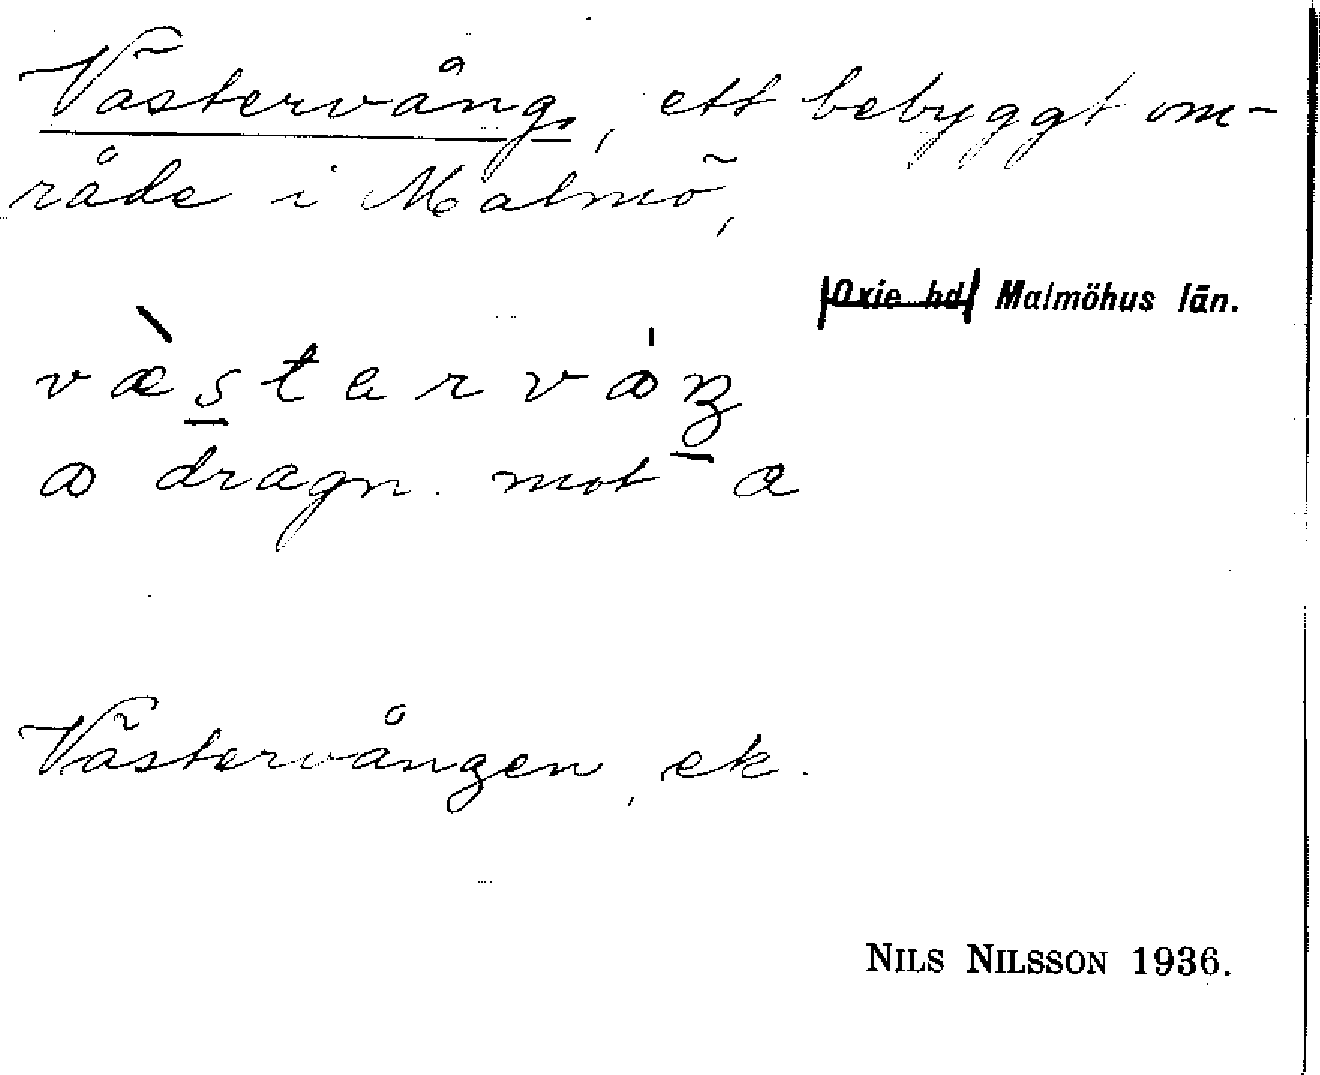 Västervång, ett bebyggt om-
råde i Malmö,
Oxie hd Malmöhus län.
a dragn. mot a
Västervången, ek.
NILS NILSSON 1936.